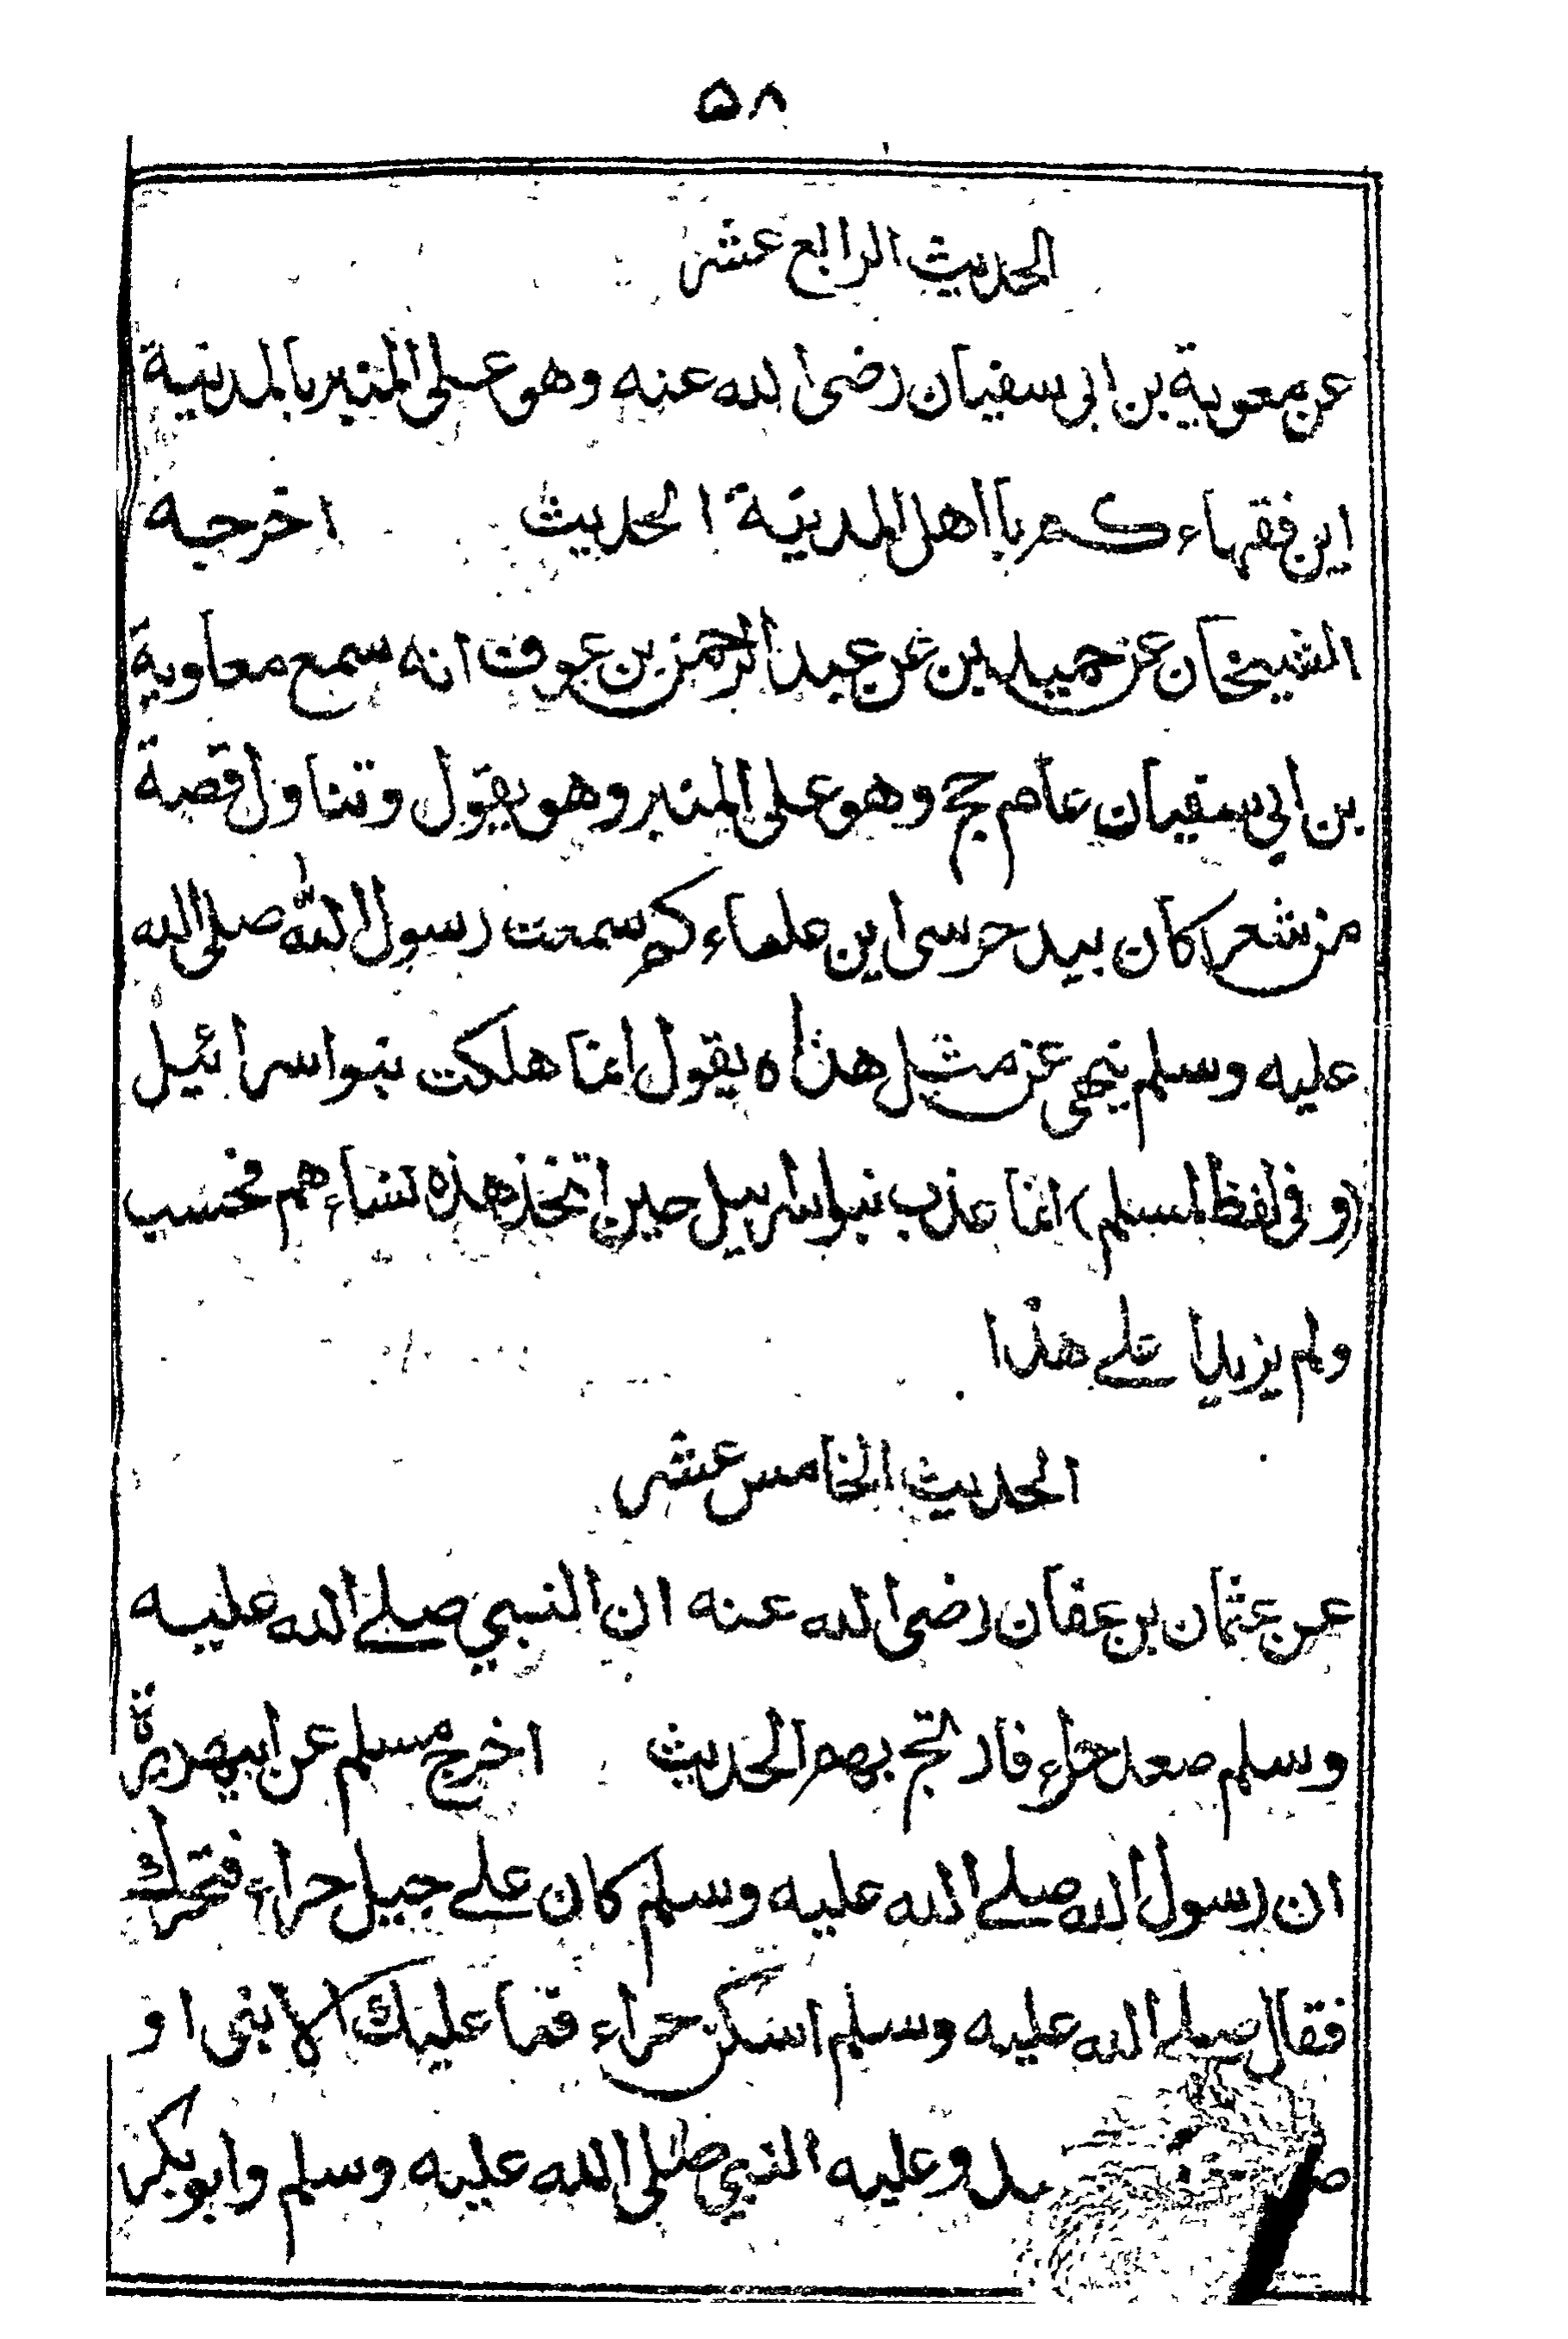 ۵۸
الحديث الرابع عشر
عن معوية بن ابى سفيان رضى الله عنه وهو على المنبر بالمدينة
اين فقهاء كم يا اهل المدينة الحديث اخرجه
الشيخان عن حميد بن عبد الرحمن بن عوف انه سمع معاوية
بن ابي سفيان عام حج وهو على المنبر وهو يقول وتناول قصة
من شعر كان بيد حرسى اين علماء كم سمعت رسول الله صلى الله
عليه وسلم ينهى عن مثل هذا ه يقول انما هلكت بنو اسرائيل
(و فى لفظ لمسلم) انما عذب بنو اسرييل حين اتخذ هذه نساء هم فحسب
ولم يزيدا على هذا
الحديث الخامس عشر
عن عثمان بن عفان رضى الله عنه ان النبي صلى الله عليه
وسلم صعد حراء فارتج بهم الحديث اخرج مسلم عن ابيهريرة
ان رسول الله صلى الله عليه وسلم كان على جبل حراء فتحرك
فقال صلى الله عليه وسلم اسكن حراء فما عليك الا نبى او
وعليه النبي صلى الله عليه وسلم وابو بكر